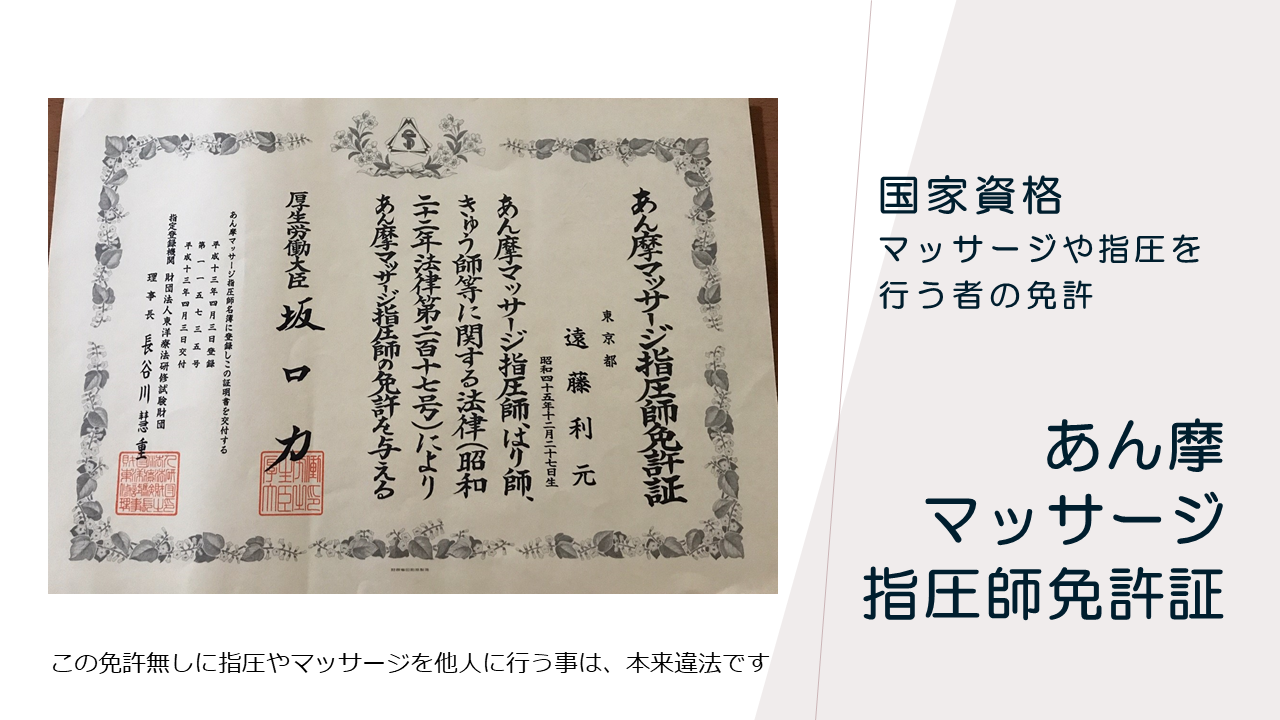 あん摩マッサージ指圧師免許証
東京都
遠藤利元
昭和四十五年十二月二十七日生
あん摩マッサージ指圧師、はり師、
きゅう師等に関する法律(昭和
二十二年法律第二百十七号)により
あん摩マッサージ指圧師の免許を与える
厚生労働大臣 坂口力
あん摩マッサージ指圧師名簿に登録しこの証明書を交付する
平成十三年四月三日登録
第一一一五七三五号
平成十三年四月三日交付
指定登録機関 財団法人東洋療法研修試験財団
理事長 長谷川慧重
国家資格
マッサージや指圧を
行う者の免許
あん摩
マッサージ
指圧師免許証
この免許無しに指圧やマッサージを他人に行う事は、本来違法です